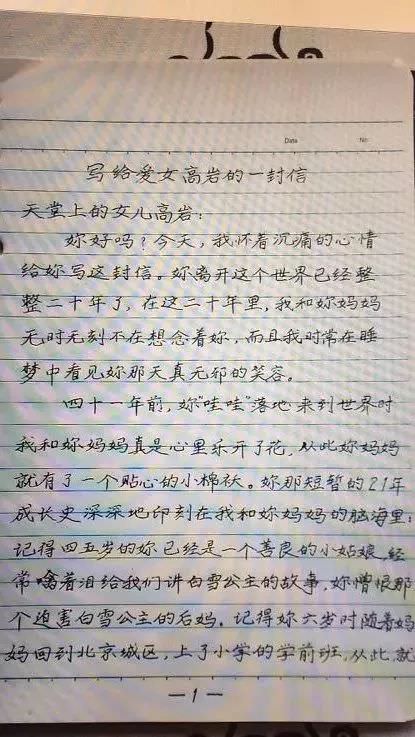 Date No.
写给爱女高岩的一封信
天堂上的女儿高岩：
妳好吗？今天，我怀着沉痛的心情
给妳写这封信。妳离开这个世界已经整
整二十年了，在这二十年里，我和妳妈妈
无时无刻不在想念着妳，而且我时常在睡
梦中看见妳那天真无邪的笑容。
四十一年前，妳"哇哇"落地来到世界时
我和妳妈妈真是心里乐开了花，从此妳妈妈
就有了一个贴心的小棉袄。妳那短暂的21年
成长史深深地印刻在我和妳妈妈的脑海里；
记得四五岁的妳已经是一个善良的小姑娘，经
常噙着泪给我们讲白雪公主的故事，妳憎恨那
个迫害白雪公主的后妈。记得妳六岁时随着妈
妈回到北京城区，上了小学的学前班，从此，就
— 1 —